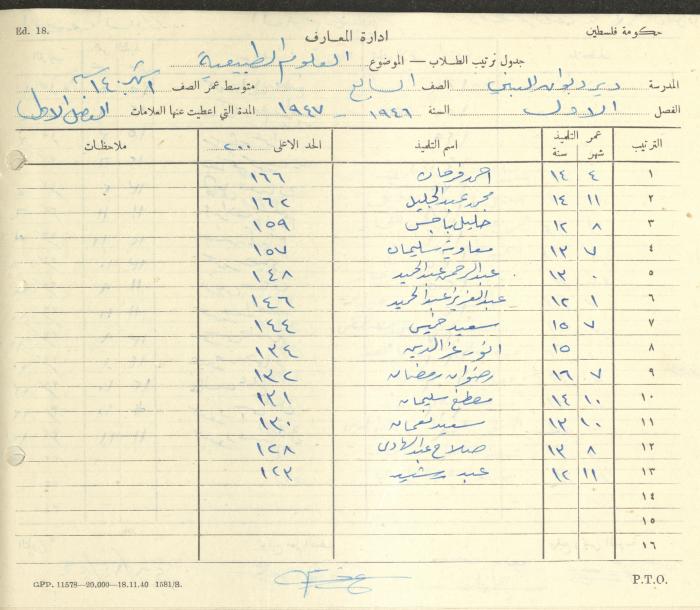 Ed. 18.
حكومة فلسطين
ادارة المعارف
جدول ترتيب الطلاب — الموضوع العلوم الطبيعية
المدرسة دير ديوان الصف السابع متوسط عمر الصف
الفصل الاول السنة ١٩٤٦ - ١٩٤٧ المدة التي اعطيت عنها العلامات الفصل الاول
الترتيب عمر التلميذ شهر سنة اسم التلميذ الحد الاعلى ٢٠٠ ملاحظات
١ ٤ ١٤ احمد فرحان ١٦٦
٢ ١١ ١٤ محمد عبد الجليل ١٦٢
٣ ٨ ١٢ خليل ١٥٩
٤ ٧ ١٣ معاوية سليمان ١٥٧
٥ ٠ ١٣ عبد الرحمن عبد الحميد ١٤٨
٦ ١ ١٢ عبد العزيز عبد الحميد ١٤٦
٧ ٧ ١٥ سعيد خميس ١٤٤
٨ ١٥ انور عز الدين ١٣٤
٩ ٧ ١٦ رضوان رمضان ١٣٢
١٠ ١٠ ١٤ مصطفى سليمان ١٣١
١١ ١٠ ١٣ سعيد نعمان ١٣٠
١٢ ٨ ١٣ صلاح عبد الهادي ١٢٨
١٣ ١١ ١٢ عبد رشيد ١٢٣
١٤
١٥
١٦
GPP. 11578—20,000—18.11.40 1581/S.
P.T.O.